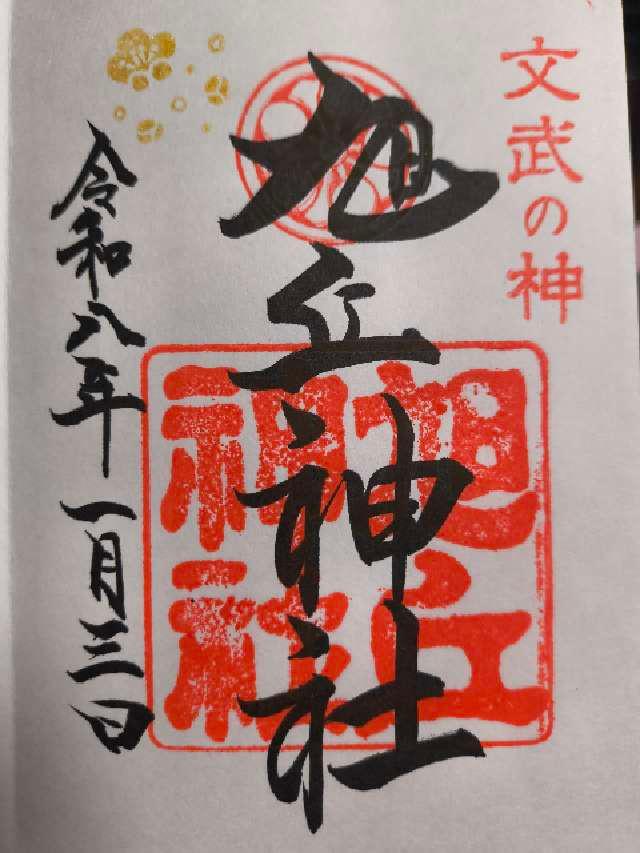 文武の神
旭丘神社
旭丘
神社
令和八年一月三日